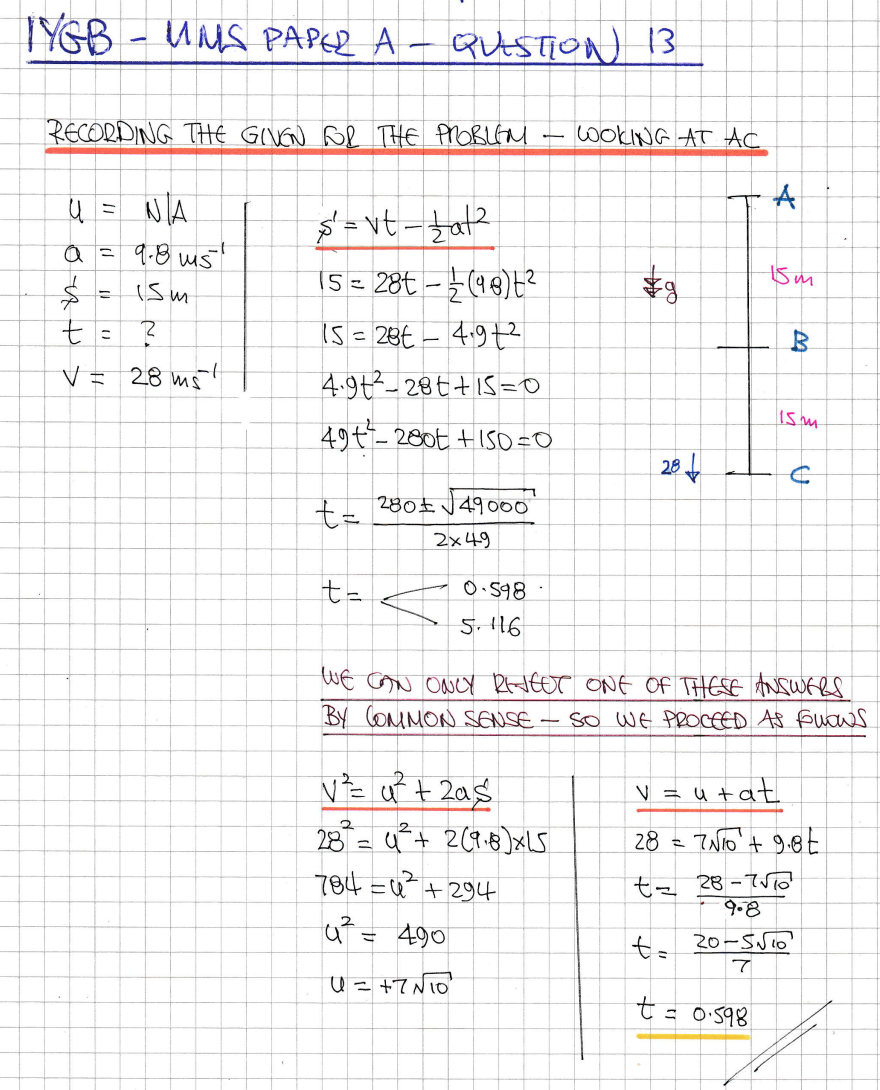 IYGB - MMS PAPER A - QUESTION 13
RECORDING THE GIVEN FOR THE PROBLEM - LOOKING AT AC
u = N/A
a = 9.8 ms⁻¹
s = 15m
t = ?
v = 28 ms⁻¹
s = vt - ½at²
15 = 28t - ½(9.8)t²
15 = 28t - 4.9t²
4.9t² - 28t + 15 = 0
49t² - 280t + 150 = 0
t = (280 ± √49000) / (2×49)
t = < 0.598
5.116
A
15m
g
B
15m
28
C
WE CAN ONLY REJECT ONE OF THESE ANSWERS
BY COMMON SENSE - SO WE PROCEED AS FOLLOWS
v² = u² + 2as
28² = u² + 2(9.8)×15
784 = u² + 294
u² = 490
u = +7√10
v = u + at
28 = 7√10 + 9.8t
t = (28 - 7√10) / 9.8
t = (20 - 5√10) / 7
t = 0.598